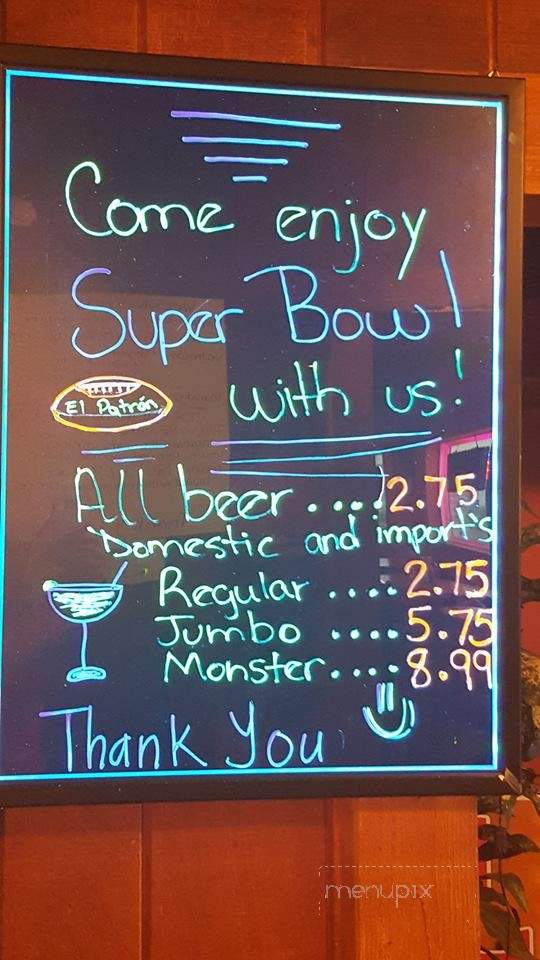 Come enjoy
Super Bowl
El Patrón
with us!
All beer....2.75
Domestic and import's
Regular ....2.75
Jumbo ....5.75
Monster....8.99
Thank You
menupix